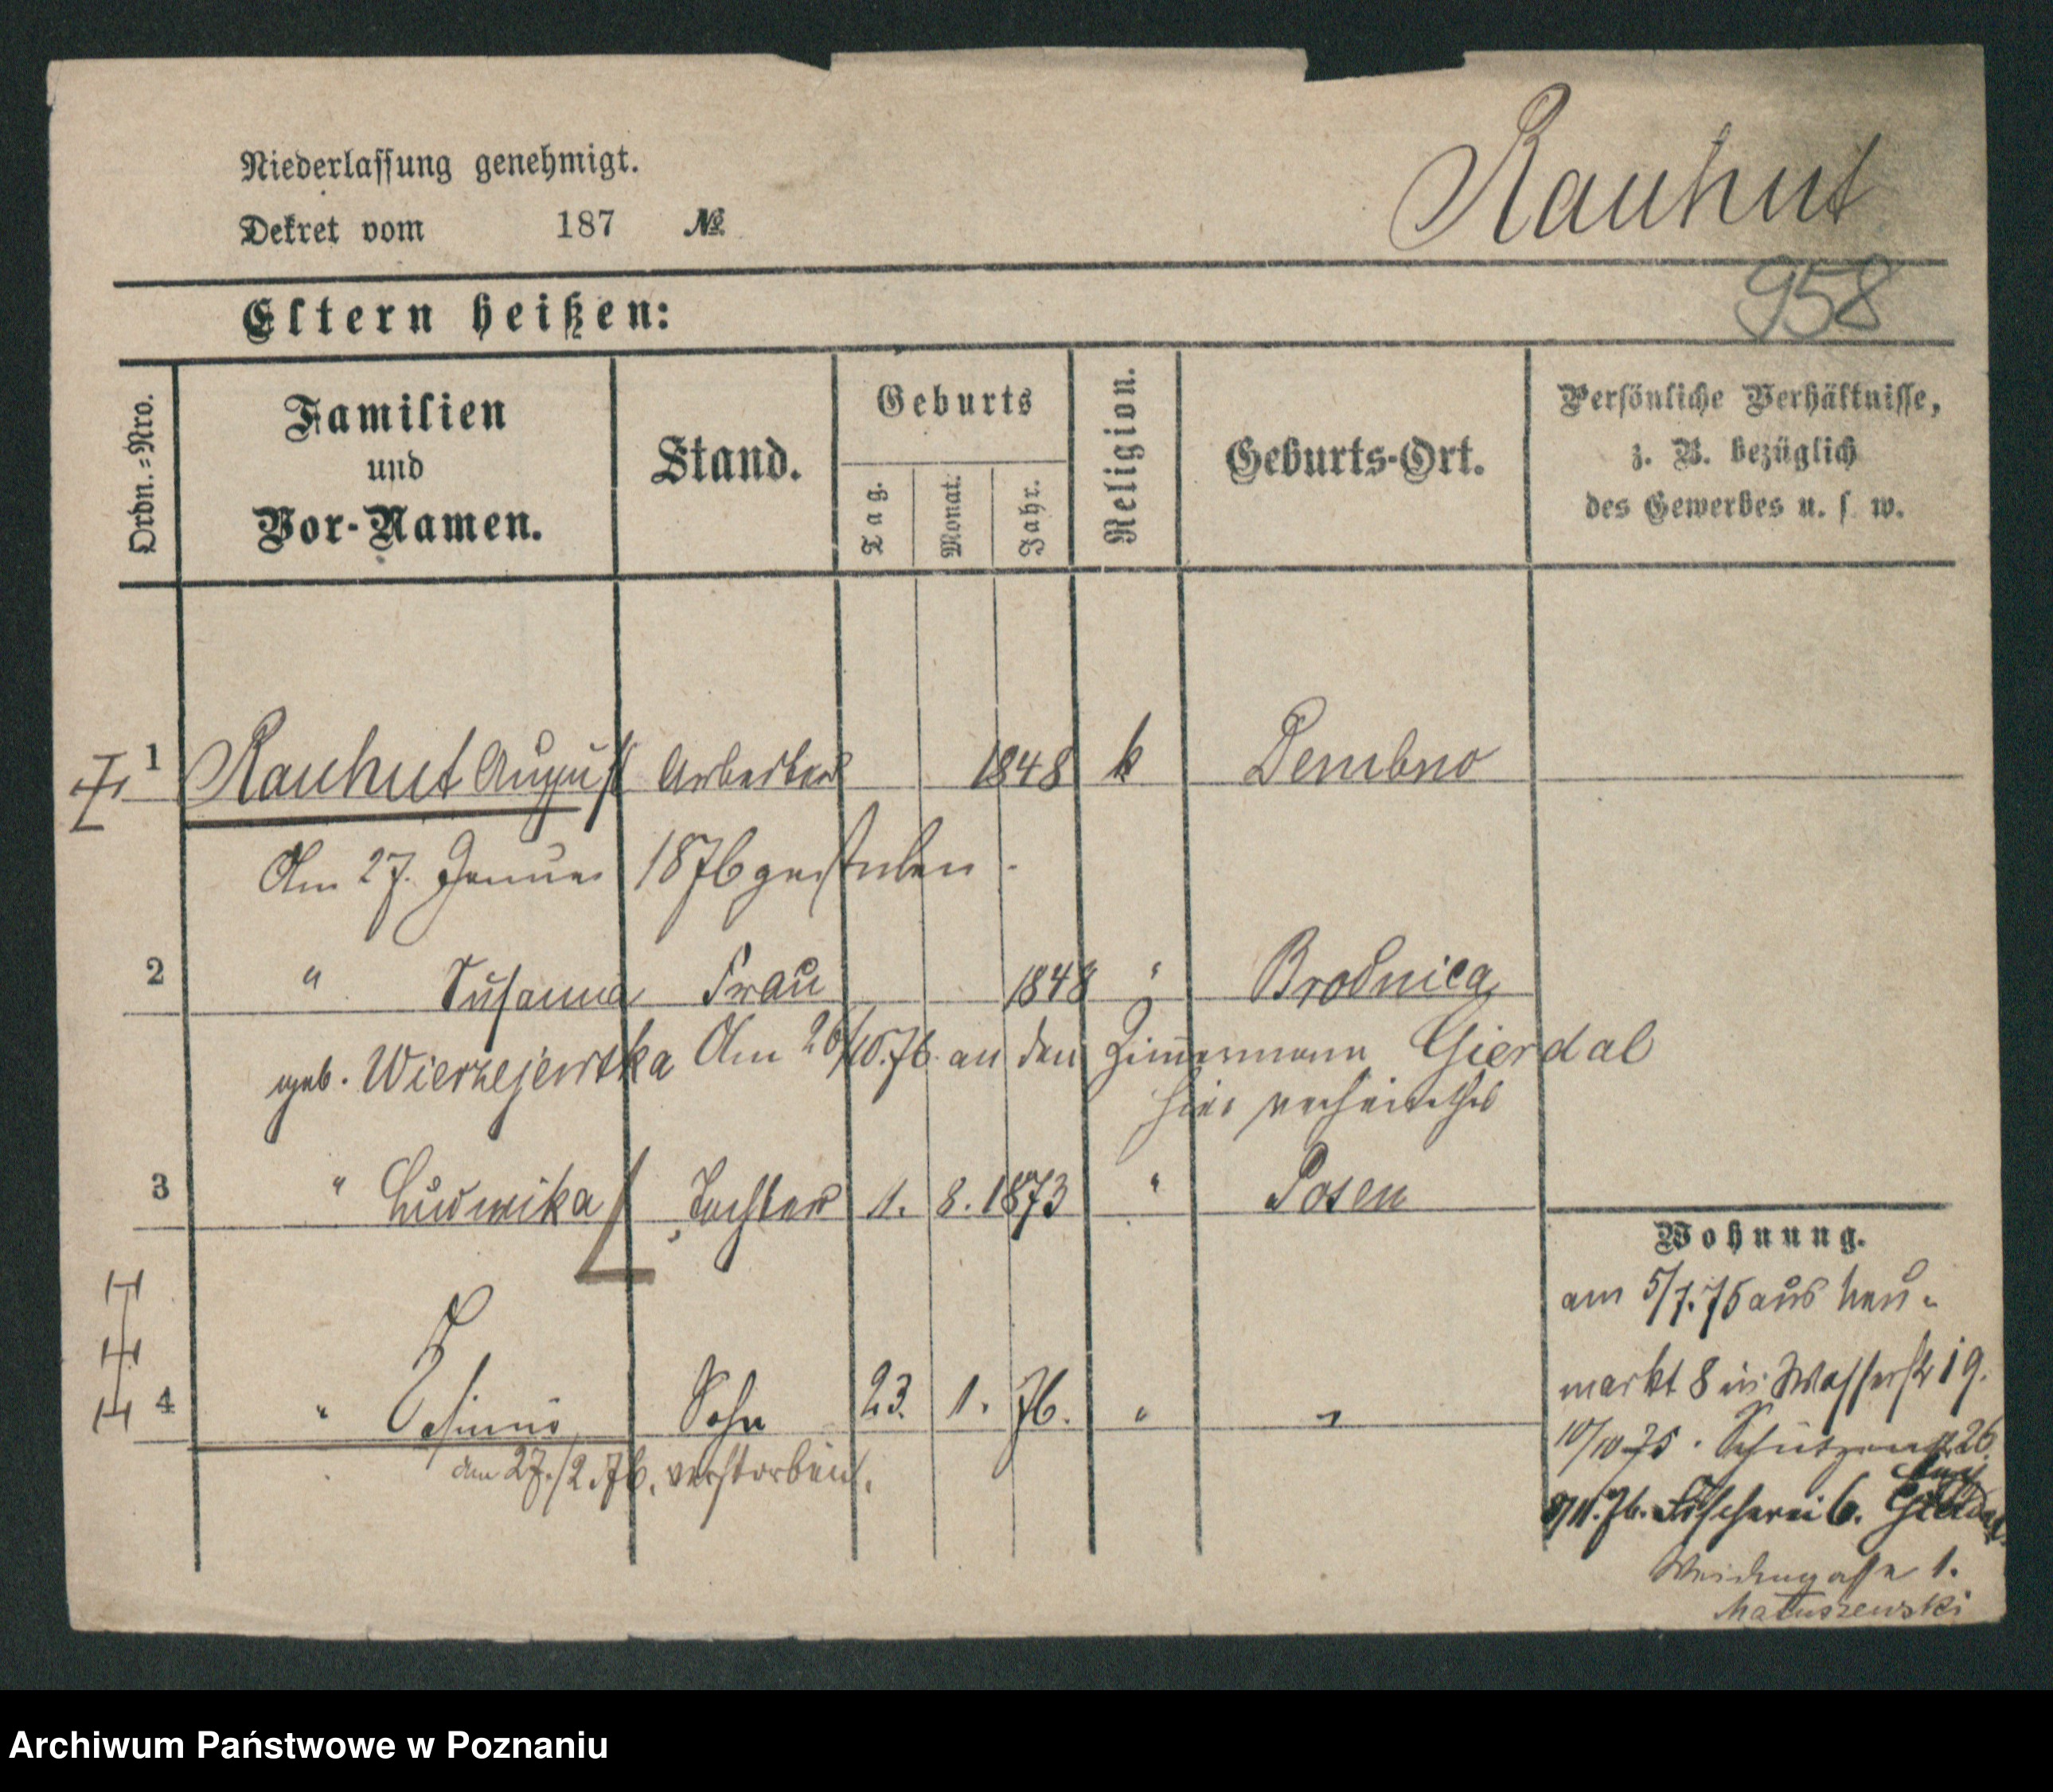 Niederlassung genehmigt.
Dekret vom 187 №
Rauhut
958
Eltern heißen:
Ordn.=Nro.
Familien
und
Vor-Namen.
Stand.
Geburts
Tag.
Monat.
Jahr.
Religion.
Geburts-Ort.
Persönliche Verhältnisse,
z. B. bezüglich
des Gewerbes u. s. w.
1 Rauhut August Arbeiter 1848 k Dembno
Am 27. Januar 1876 gestorben.
2 " Susanna Frau 1848 " Brodnica
geb. Wierzejewska Am 26/10.76. an den Zimmermann Gierdal
hier verheirathet
3 " Ludwika Tochter 1. 8. 1873 " Posen
Wohnung.
am 5/7.75 aus Neu-
markt 8 in Wasserstr 19.
4 " Sohn 23. 1. 76. " "
den 27./2.76. verstorben.
10/10 75. Schützenstr 26
8/11.76. Fischerei 6.
Weidengasse 1.
Matuszewski
Archiwum Państwowe w Poznaniu